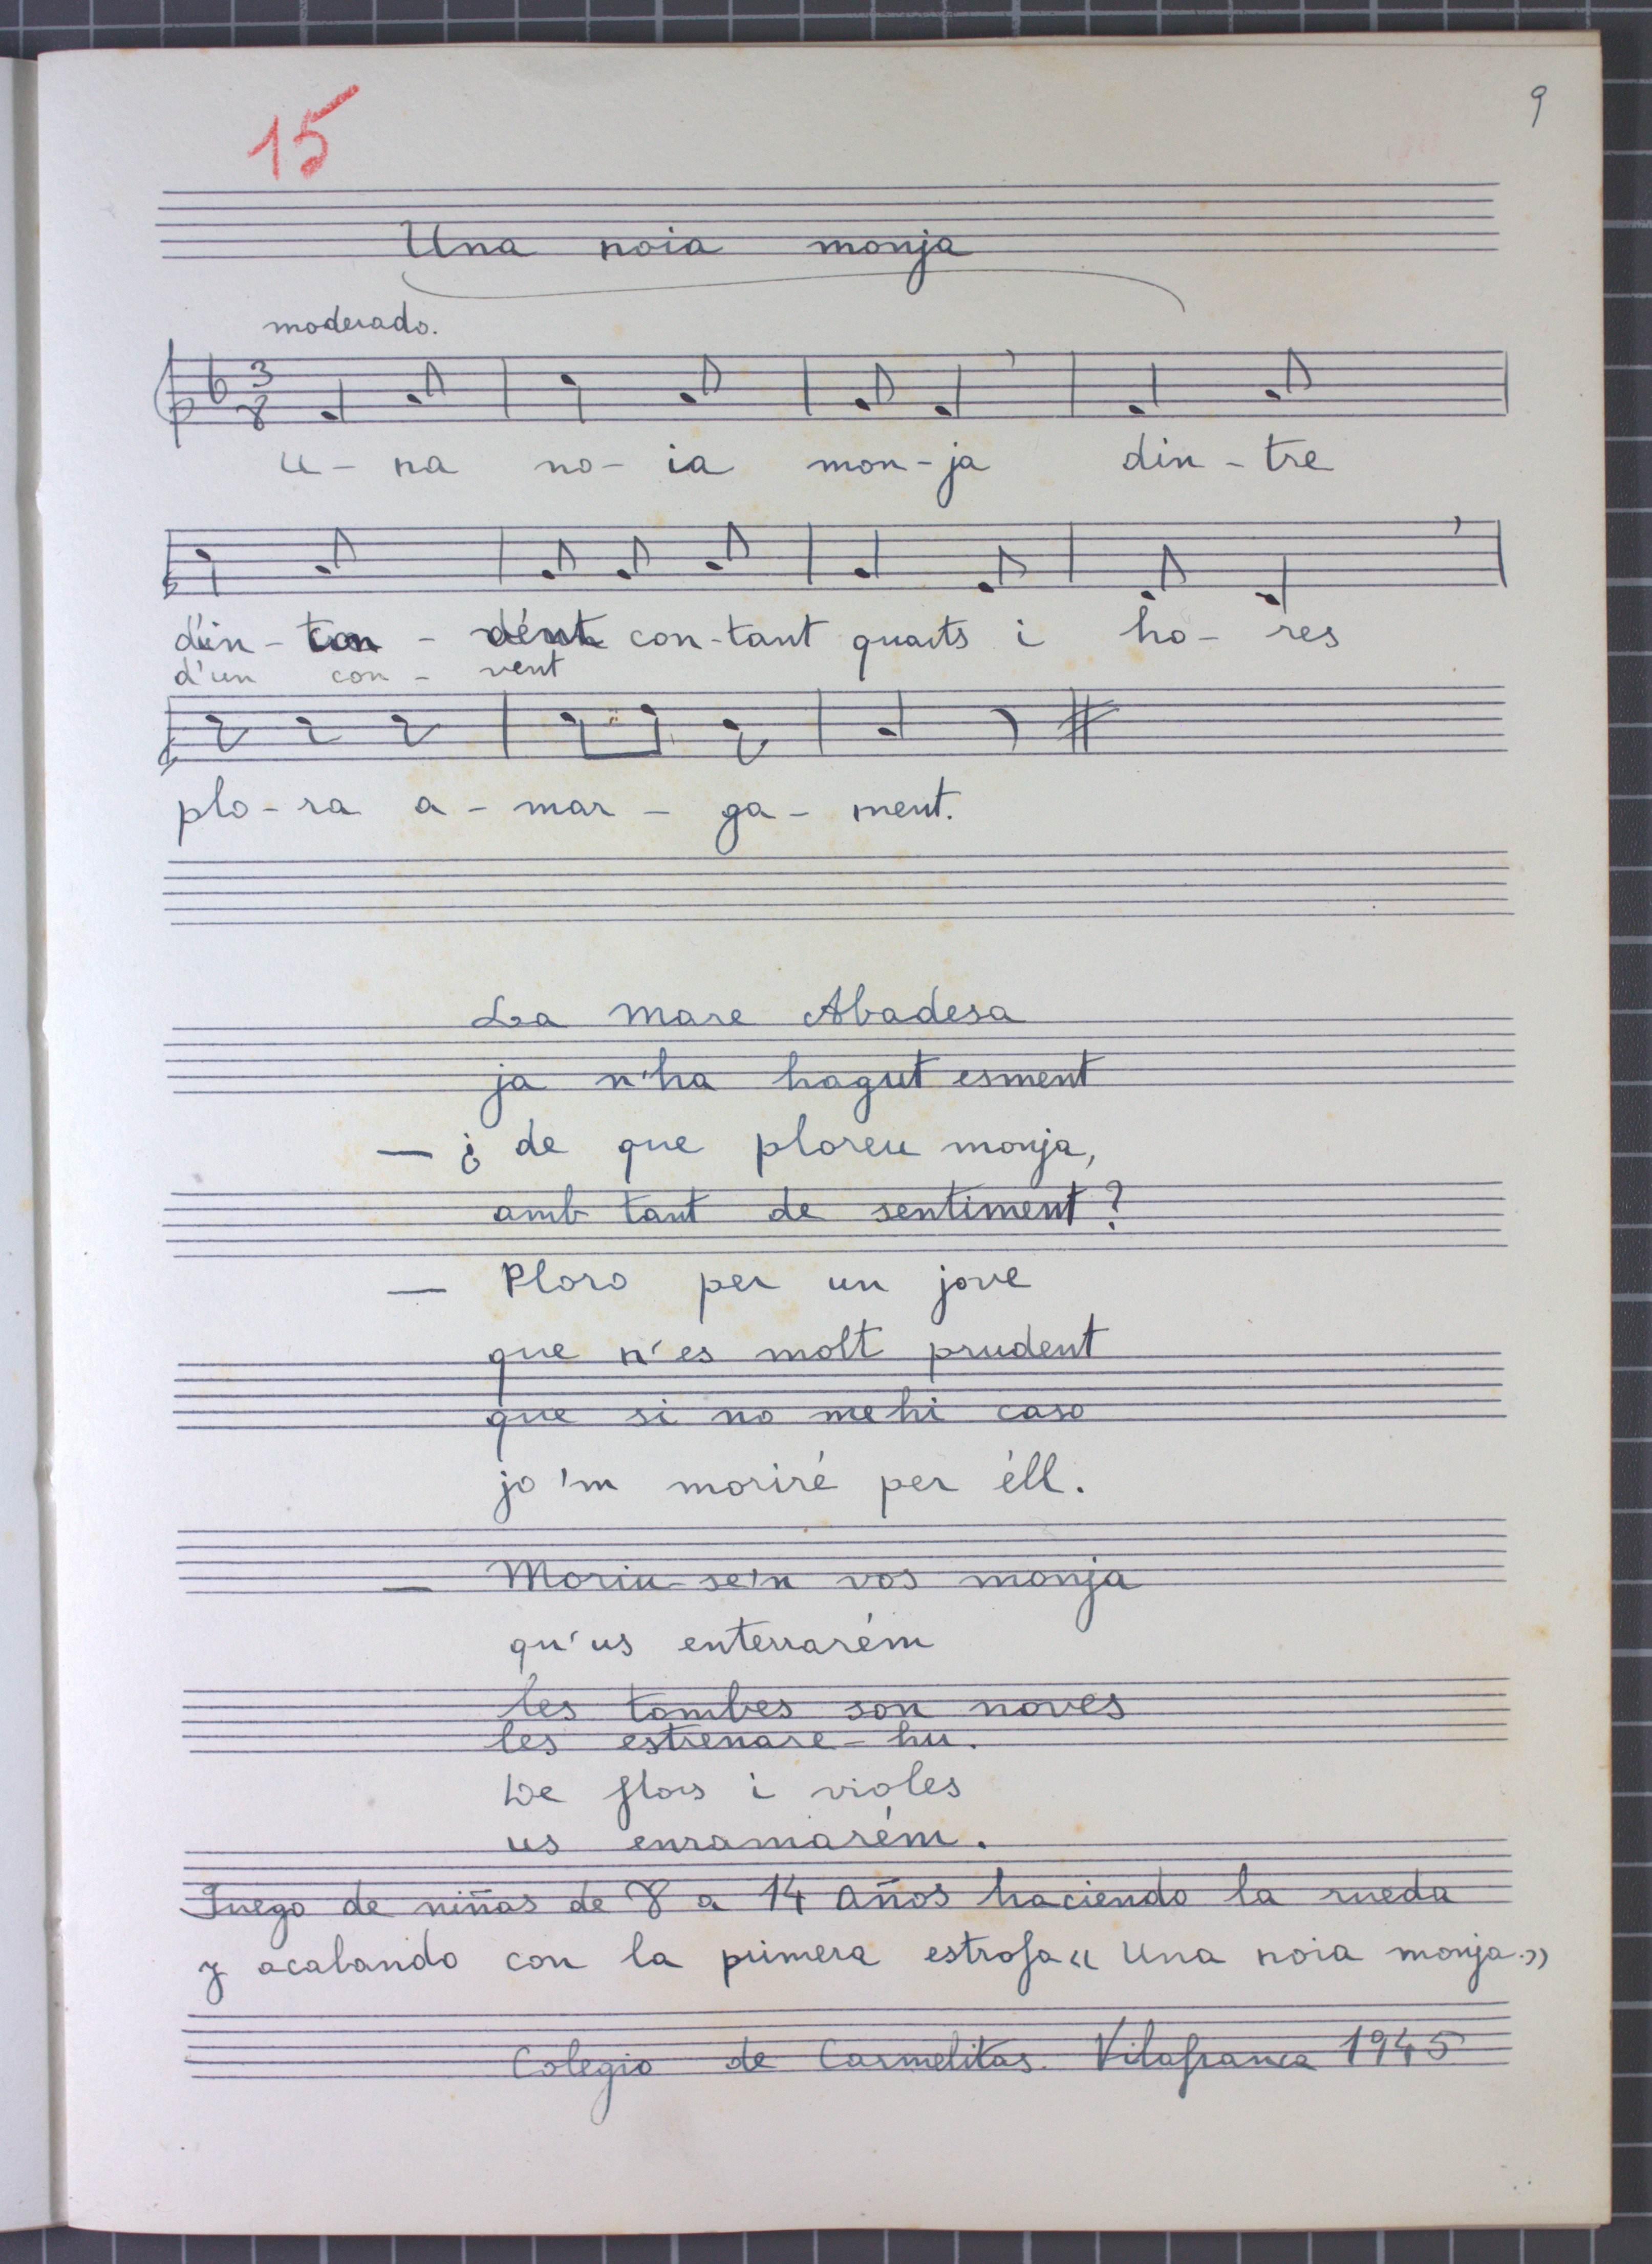 15
9
Una noia monja
moderado.
3
8
U - na no - ia mon - ja din - tre
con - tant quarts i ho - res
d'un con - vent
plo - ra a - mar - ga - ment.
La Mare Abadesa
ja n'ha hagut esment
— ¿ de que ploreu monja,
amb tant de sentiment?
— Ploro per un jove
que n'es molt prudent
que si no mehi caso
jo 'm moriré per éll.
— Moriu-se'n vos monja
qu'us enterrarém
les tombes son noves
les estrenare-hu.
De flors i violes
us enramarém.
Juego de niñas de 8 a 14 años haciendo la rueda
y acabando con la primera estrofa « Una noia monja.»
Colegio de Carmelitas. Vilafranca 1945